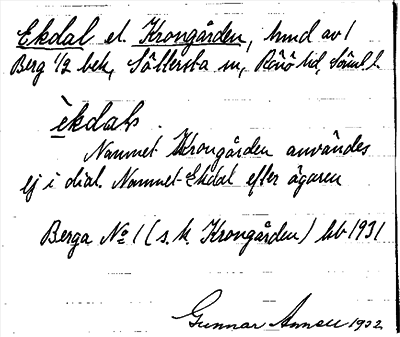 Ekdal el. Krongården, hmd av 1
Berg 1/2 bek, Sättersta sn, Rönö hd, Söd l.
èkdals.
Namnet Krongården användes
ej i dial. Namnet Ekdal efter ägaren
Berga No 1 (s. k. Krongården) lb 1931
Gunnar 1932